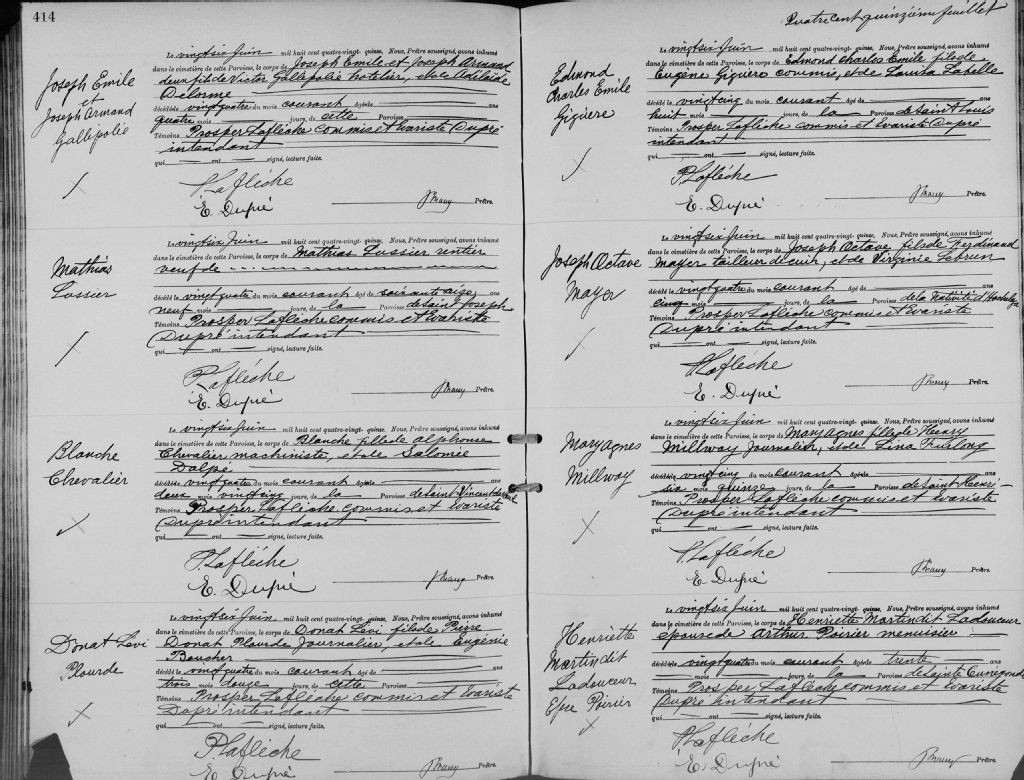 414
Joseph Emile
et
Joseph Armand
Gallepolie
Le vingt six Juin mil huit cent quatre-vingt- quinze, Nous, Prêtre soussigné, avons inhumé
dans le cimetière de cette Paroisse, le corps de Joseph Emile et Joseph Armand
deux fils de Victor Gallepolie hotelier, et de Adelaide
Delorme
décédés vingt quatre du mois courant âgés de ans
quatre mois jours, de cette Paroisse
Témoins Prosper Laflèche commis et Evariste Dupré
intendant
qui ont signé, lecture faite.
P. Laflèche
E. Dupré
Prêtre.
Mathias
Lussier
Le vingt six Juin mil huit cent quatre-vingt- quinze, Nous, Prêtre soussigné, avons inhumé
dans le cimetière de cette Paroisse, le corps de Mathias Lussier rentier
veuf de
décédé le vingt quatre du mois courant âgé de soixante seize ans
neuf mois jours, de la Paroisse de Saint Joseph
Témoins Prosper Laflèche commis et Evariste
Dupré intendant
qui ont signé, lecture faite.
P. Laflèche
E. Dupré
Prêtre.
Blanche
Chevalier
Le vingt six Juin mil huit cent quatre-vingt- quinze, Nous, Prêtre soussigné, avons inhumé
dans le cimetière de cette Paroisse, le corps de Blanche fille de Alphonse
Chevalier machiniste, et de Salomée
Dalpé
décédée vingt quatre du mois courant âgée de ans
deux mois vingt cinq jours, de la Paroisse de Saint Vincent de Paul
Témoins Prosper Laflèche commis et Evariste
Dupré intendant
qui ont signé, lecture faite.
P. Laflèche
E. Dupré
Prêtre.
Donat Lévi
Plourde
Le vingt six Juin mil huit cent quatre-vingt- quinze, Nous, Prêtre soussigné, avons inhumé
dans le cimetière de cette Paroisse, le corps de Donat Lévi fils de Pierre
Donat Plourde Journalier, et de Eugénie
Boucher
décédé le vingt quatre du mois courant âgé de ans
trois mois douze jours, de cette Paroisse
Témoins Prosper Laflèche commis et Evariste
Dupré intendant
qui ont signé, lecture faite.
P. Laflèche
E. Dupré
Prêtre.
Quatre cent quinzième feuillet
Edmond
Charles Emile
Giguère
Le vingt six Juin mil huit cent quatre-vingt- quinze, Nous, Prêtre soussigné, avons inhumé
dans le cimetière de cette Paroisse, le corps de Edmond Charles Emile fils de
Eugène Giguère commis, et de Louisa Labelle
décédé le vingt cinq du mois courant âgé de ans
huit mois jours, de la Paroisse de Saint Louis
Témoins Prosper Laflèche commis et Evariste Dupré
intendant
qui ont signé, lecture faite.
P. Laflèche
E. Dupré
Prêtre.
Joseph Octave
Mayer
Le vingt six Juin mil huit cent quatre-vingt- quinze, Nous, Prêtre soussigné, avons inhumé
dans le cimetière de cette Paroisse, le corps de Joseph Octave fils de Ferdinand
Mayer tailleur de cuir, et de Virginie Lebrun
décédé le vingt quatre du mois courant âgé de ans
cinq mois jours, de la Paroisse de la Nativité d'Hochelaga
Témoins Prosper Laflèche commis et Evariste
Dupré intendant
qui ont signé, lecture faite.
P. Laflèche
E. Dupré
Prêtre.
Mary Agnes
Millway
Le vingt six Juin mil huit cent quatre-vingt- quinze, Nous, Prêtre soussigné, avons inhumé
dans le cimetière de cette Paroisse, le corps de Mary Agnes fille de Henry
Millway Journalier, et de Lina Furlong
décédée vingt cinq du mois courant âgée de ans
six mois quinze jours, de la Paroisse de Saint Henri
Témoins Prosper Laflèche commis et Evariste
Dupré intendant
qui ont signé, lecture faite.
P. Laflèche
E. Dupré
Prêtre.
Henriette
Martin dit
Ladouceur
Epse Poirier
Le vingt six Juin mil huit cent quatre-vingt- quinze, Nous, Prêtre soussigné, avons inhumé
dans le cimetière de cette Paroisse, le corps de Henriette Martin dit Ladouceur
epouse de Arthur Poirier menuisier
décédée vingt quatre du mois courant âgée de trente ans
mois jours, de la Paroisse de Sainte Cunégonde
Témoins Prosper Laflèche commis et Evariste
Dupré intendant
qui ont signé, lecture faite.
P. Laflèche
E. Dupré
Prêtre.